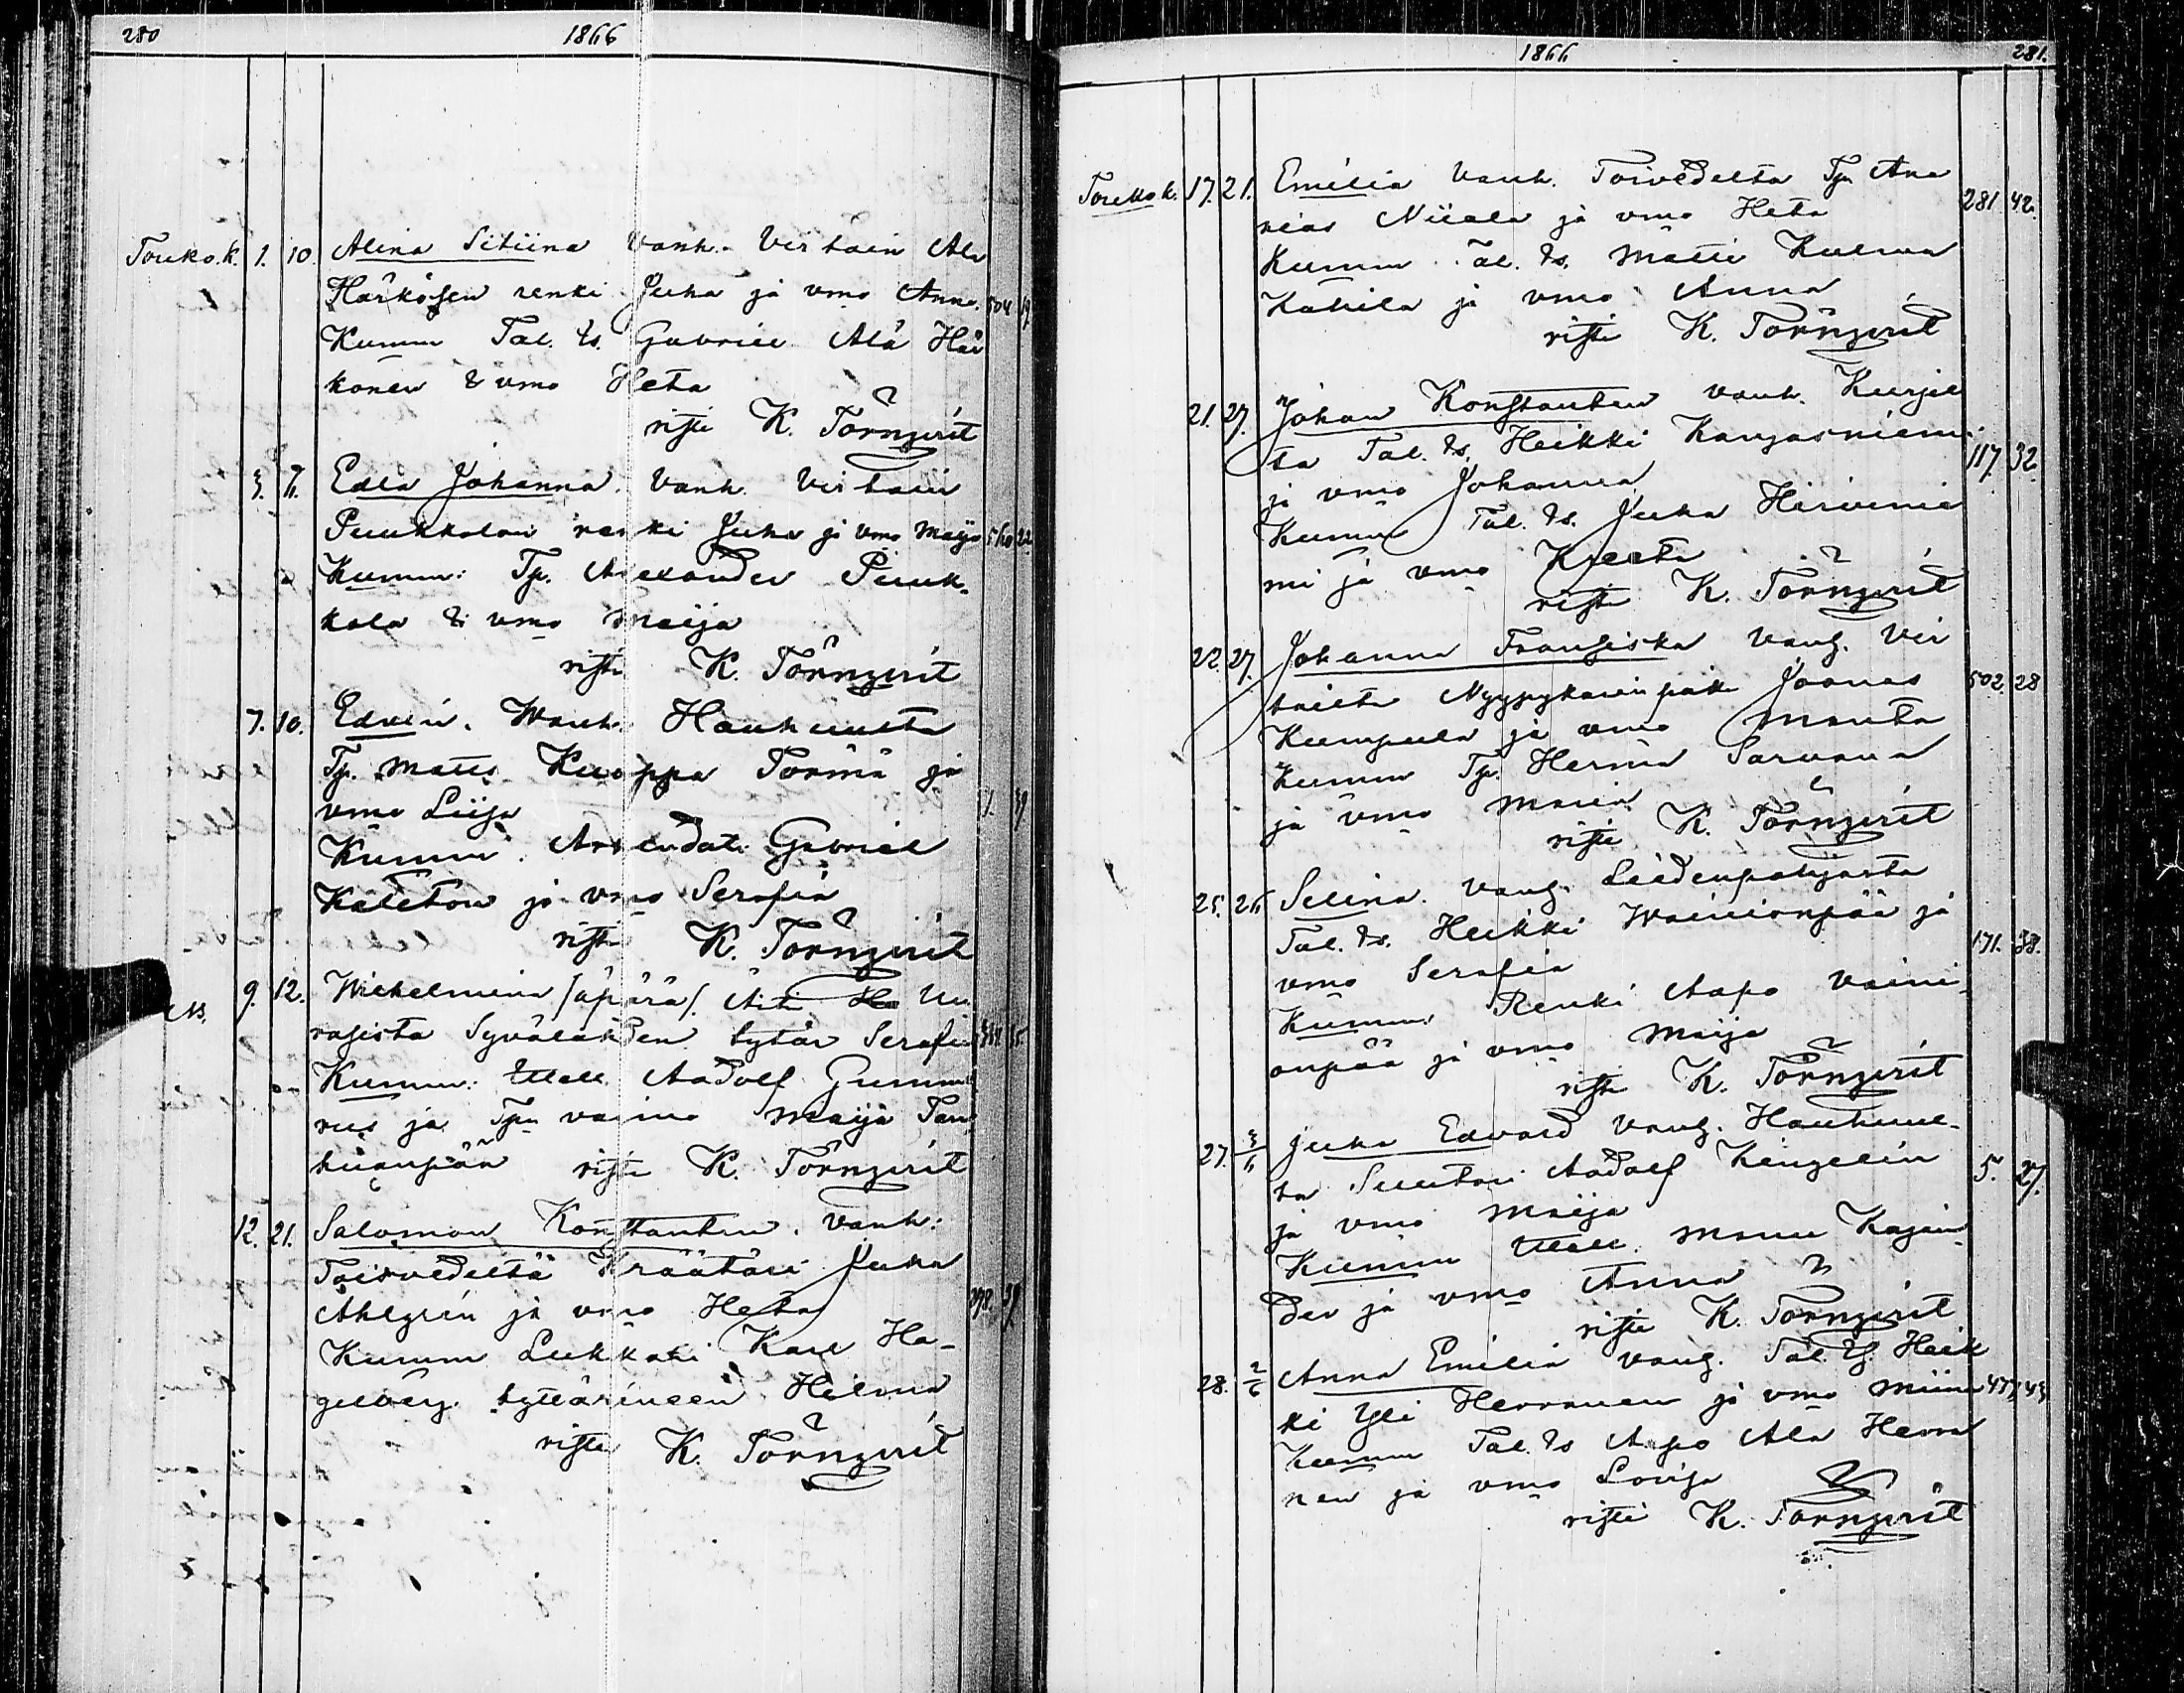 280 1866
Touko.k. 1. 10. Alina Sitiina Vanh. Virtain Ala
Härkösen renki Juha ja vmo Anna. 504 19
Kumm Tal. ts. Gabriel Ala Här
könen & vmo Heta
risti K. Törnqvist
3. 6. Edla Johanna. Vanh. Virtain
Puukkolan renki Juha ja vmo Maija 22
Kumm: Tp. Alexander Puuk-
kola & vmo Maija
risti K. Törnqvist
7. 10. Edvin. Wanh. Hauhuutta
Tp. Matts Kuoppa Törmä ja
vmo Liisa 1. 39
Kumm. Arendat. Gabriel
Käleton ja vmo Serafia
risti K. Törnqvist
9. 12. Wilhelmiina /äpärä/. Äiti Uu
rasista Syvälahden tytär Serafia
Kumm: Itsell. Aadolf Gumme
rus ja Tpn vaimo Maija Tan
huanpää risti K. Törnqvist
12. 21. Salomon Konstantin. Vanh:
Toisvedeltä Kräätäri Juha
Ahlgrén ja vmo Heta 278. 39
Kumm Lukkari Karl Ha-
gelberg tyttärineen Hilma
risti K. Törnqvist
1866 281.
Touko k. 17. 21. Emilia Vanh. Toivedelta Tp. Ana
nias Niiala ja vmo Heta 281 42.
Kumm Tal. ts. Matti Kulma
Kahila ja vmo Anna
risti K. Törnqvist
21. 27. Johan Konstantin vanh. Kurjel
ta Tal. ts. Heikki Kangasniemi 117. 32
ja vmo Johanna
Kumm Tal. ts. Juha Hirvinie
mi ja vmo Kreeta
risti K. Törnqvist
22. 27. Johanna Fransiska Vanh. Vir
taista Nyypykänin pak. Joonas 502 28
Kumpula ja vmo Manta
Kumm Tp. Herma Sarvana
ja vmo Maria
risti K. Törnqvist
25. 26 Selina. Vanh. Liedenpohjasta
Tal. ts. Heikki Wäinionpää ja 171. 38.
vmo Serafia
Kumm: Renki Aapo Väini-
onpää ja vmo Maija
risti K. Törnqvist
27. 3/6 Juha Edvard Vanh. Hauhuul-
ta Suutari Aadolf Lingelin 5. 27.
ja vmo Maija
Kumm Itsell. Manu Kajan-
der ja vmo Anna
risti K. Törnqvist
28. 2/6 Anna Emilia Vanh. Tal. ts. Heik
ki Yli Herranen ja vmo Miina 477. 43
Kumm Tal. ts Aapo Ala Herra
nen ja vmo Lovisa
risti K. Törnqvist